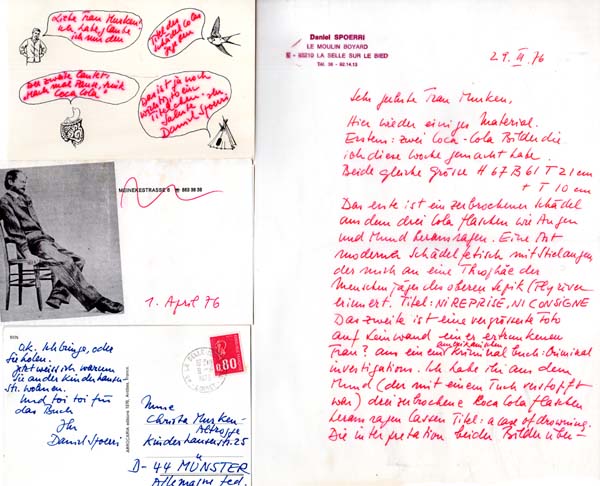 Liebe Frau Murken!
ich habe glaube
ich nur den
Titel des
Schädel Colas
gegeben
Der zweite lautet:
"Mach mal Pause, trink
Coca Cola"
Das ist ja noch
Titelchen. Ihr
Daniel Spoerri
MEINEKESTRASSE 6 ☎ 883 38 38
1. April 76
o.k. Ich bringe, oder
Sie holen.
Jetzt weiss ich warum
Sie an der Kinderhauser-
str. wohnen.
Und toi toi für
das Buch
Ihr
Daniel Spoerri
0.80
Mme
Christa Murken-
Altrogge
Kinderhauserstr. 25
D-44 MÜNSTER
Allemagne Fed.
Daniel SPOERRI
LE MOULIN BOYARD
45210 LA SELLE SUR LE BIED
Tél. 38 - 92.14.13
29. III. 76
Sehr geehrte Frau Murken,
Hier wieder einiges Material.
Erstens: zwei Coca-Cola Bilder die
ich diese Woche gemacht habe.
Beide gleiche Grösse H 67 B 61 T 21 cm
+ T 10 cm
Das erste ist ein zerbrochener Schädel
aus dem drei Cola flaschen wie Augen
und Mund herausragen. Eine Art
moderner Schädelfetisch mit Stielaugen
der mich an eine Trophäe der
Menschenjäger des oberen Sepik (Fly river
erinnert. Titel: NI REPRISE, NI CONSIGNE
Das zweite ist eine vergrösserte Foto
auf Leinwand einer ertrunkenen
Frau? aus einem amerikanischen Kriminal Buch: Criminal
investigation. Ich habe ihr aus dem
Mund (der mit einem Tuch verstopft
war) drei zerbrochene Coca Cola flaschen
herausragen lassen Titel: a case of drowning.
Die interpretation beider Bilder über-